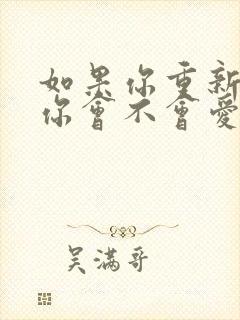 如果你重新
你會不會愛
吴满哥